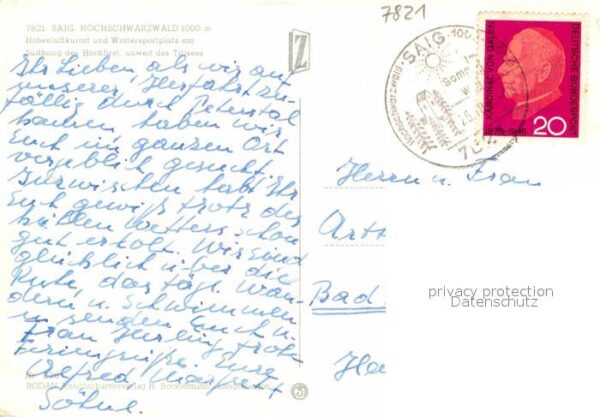 7821
7821 SAIG HOCHSCHWARZWALD 1000 m
Höhenluftkurort und Wintersportplatz am
Südhang des Hochfirst, unweit des Titisees
Ihr Lieben, als wir auf
unserer Herfahrt zu-
fällig durch Peterstal
kamen haben wir
Euch im ganzen Ort
vergeblich gesucht.
Inzwischen habt Ihr
Euch gewiß trotz des
Wetters schon
gut erholt. Wir sind
glücklich über die
Ruhe, das tägl. Wan-
dern u. Schwimmen
u. senden Euch u.
Frau frohe
Feriengrüße. Eure
Alfred
Söhne.
BODAN
SAIG 100
HOCHSCHWARZWALD
KARDINAL VON GALEN
1878-1946
DEUTSCHE BUNDESPOST
20
Herrn u. Frau
Arth
Bad
Ha
privacy protection
Datenschutz